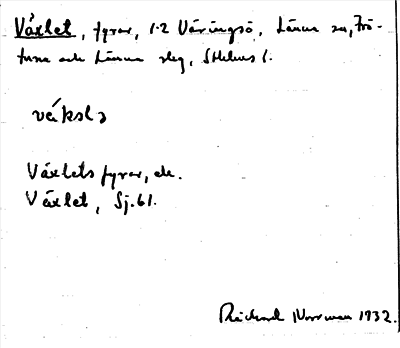 Växlet, fyrar, 1-2 Väringsö, Länna sn, Frö-
tuna och Länna slg, Sthlms l.
väkslə
Växlets fyrar, ek.
Växlet, Sj. 61.
Rickard Norrman 1932.